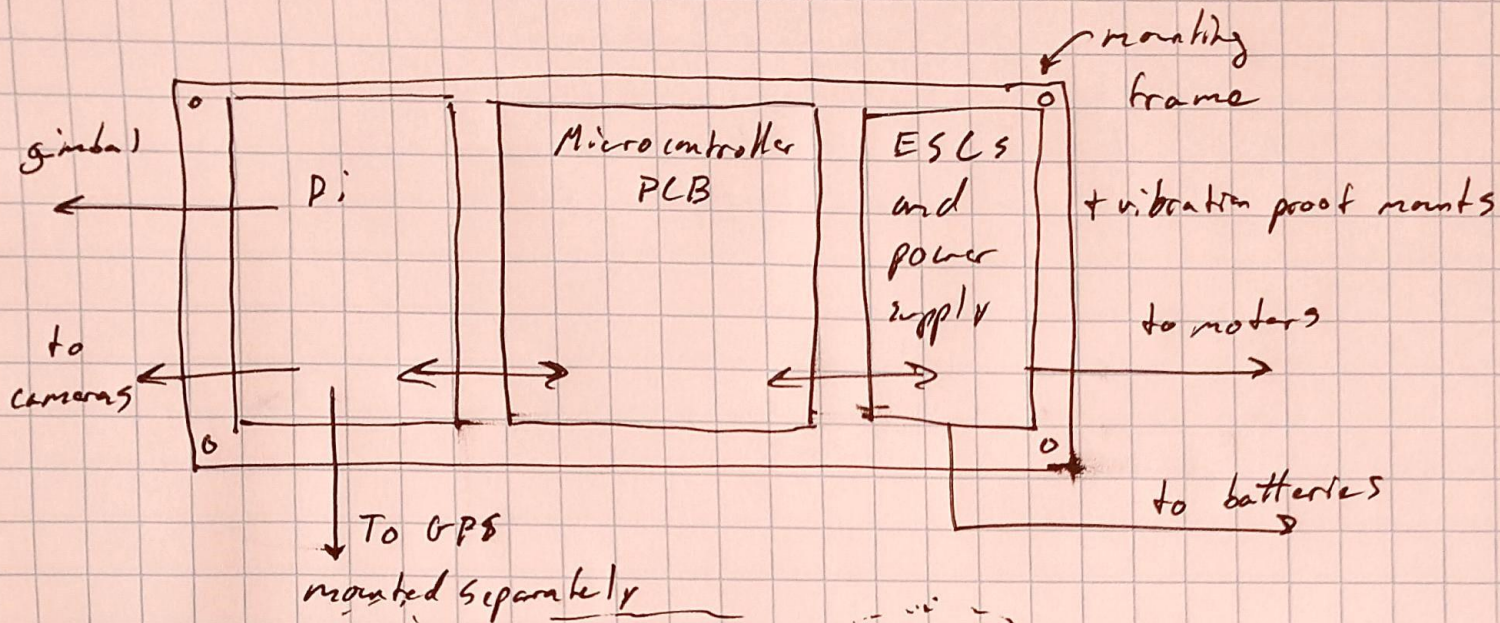 mounting
frame
gimbal
Pi
Microcontroller
PCB
ESCs
and
power
supply
+ vibration proof mounts
to
cameras
to motors
To GPS
mounted separately
to batteries